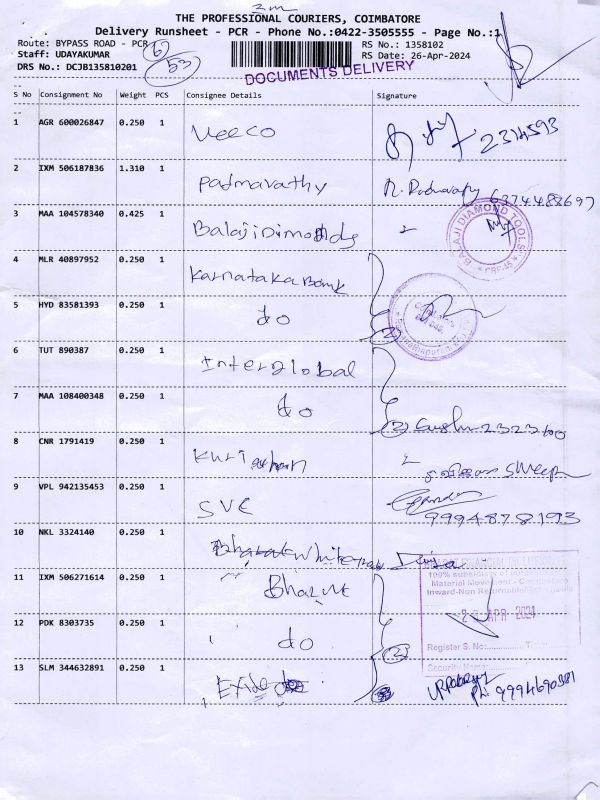 2m
THE PROFESSIONAL COURIERS, COIMBATORE
Delivery Runsheet - PCR - Phone No.:0422-3505555 - Page No.:1
Route: BYPASS ROAD - PCR
RS No.: 1358102
Staff: UDAYAKUMAR
RS Date: 26-Apr-2024
DRS No.: DCJB135810201 53
DOCUMENTS DELIVERY
S No Consignment No Weight PCS Consignee Details Signature
1 AGR 600026847 0.250 1 Veeco 2314593
2 IXM 506187836 1.310 1 Padmavathy
3 MAA 104578340 0.425 1
BALAJI DIAMOND TOOLS
CBE-45
4 MLR 40897952 0.250 1 Karnataka Bank
5 HYD 83581393 0.250 1 do 2
6 TUT 890387 0.250 1 Interglobal
7 MAA 108400348 0.250 1 do 2 2323600
8 CNR 1791419 0.250 1
9 VPL 942135453 0.250 1 SVE
9994878193
10 NKL 3324140 0.250 1
100% subsidiary
Material Movement - Coimbatore
11 IXM 506271614 0.250 1
Inward-Non Returnable
APR 2024
12 PDK 8303735 0.250 1 do 2
Register S. No:
Security Name:
13 SLM 344632891 0.250 1 Exide